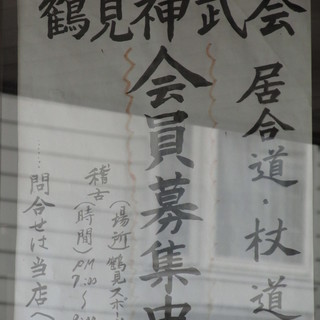 鶴見神武会
居合道・杖道
会員募集中
稽古(場所)鶴見スポ
(時間)PM 7:00〜9:
……問合せは当店へ